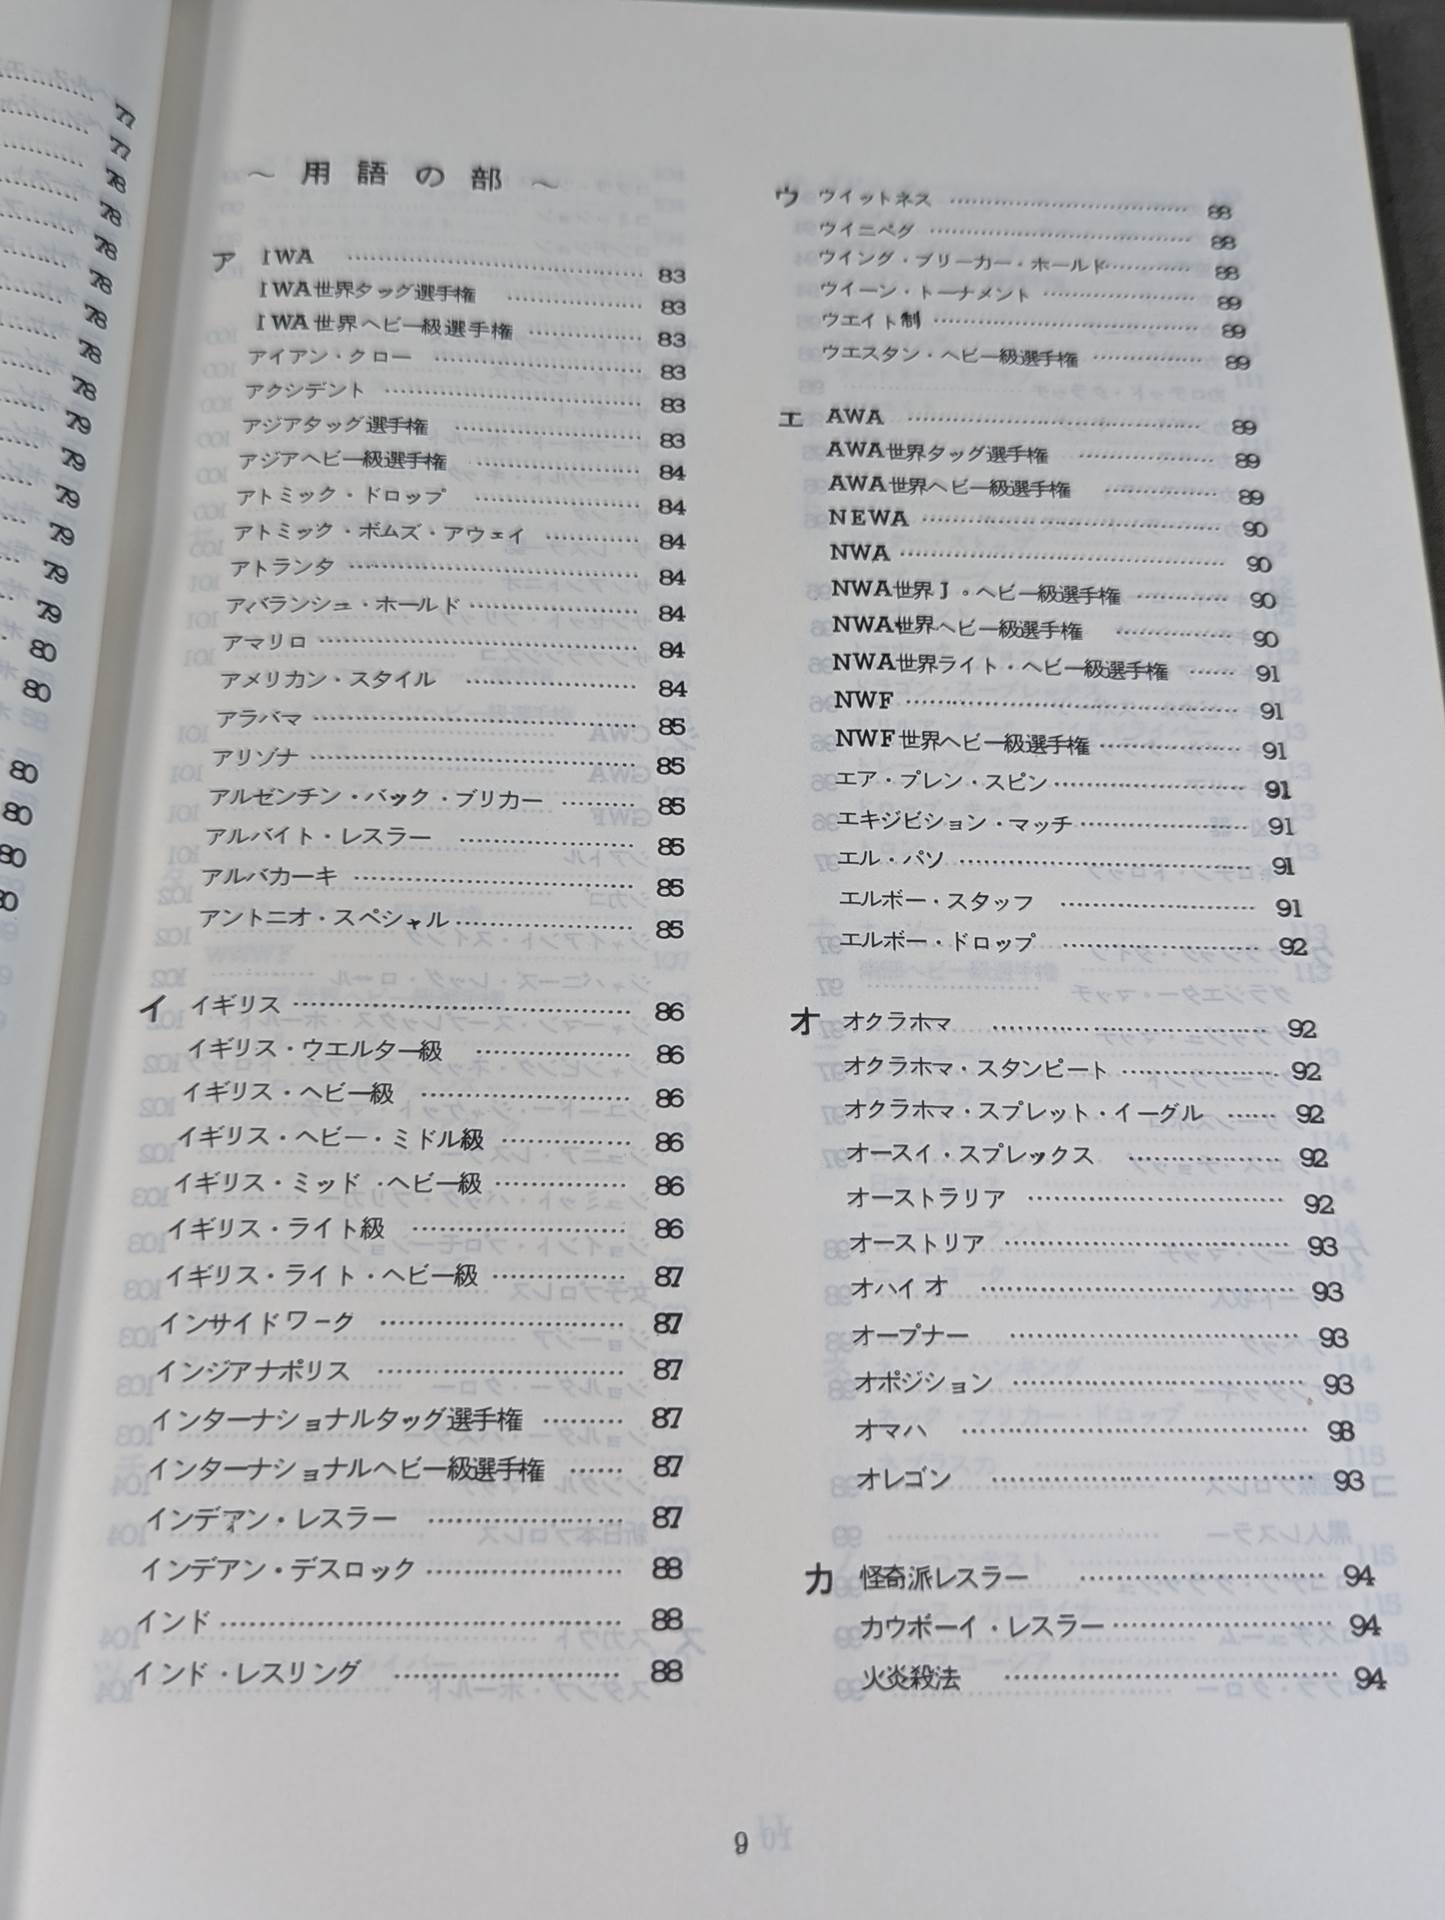 77
77
78
78
78
78
78
78
78
79
79
79
79
79
79
80
80
80
80
80
80
～ 用語の部 ～
ア IWA ………… 83
IWA世界タッグ選手権 ………… 83
IWA世界ヘビー級選手権 ………… 83
アイアン・クロー ………… 83
アクシデント ………… 83
アジアタッグ選手権 ………… 83
アジアヘビー級選手権 ………… 84
アトミック・ドロップ ………… 84
アトミック・ボムズ・アウェイ ………… 84
アトランタ ………… 84
アバランシュ・ホールド ………… 84
アマリロ ………… 84
アメリカン・スタイル ………… 84
アラバマ ………… 85
アリゾナ ………… 85
アルゼンチン・バック・ブリカー ………… 85
アルバイト・レスラー ………… 85
アルバカーキ ………… 85
アントニオ・スペシャル ………… 85
イ イギリス ………… 86
イギリス・ウエルター級 ………… 86
イギリス・ヘビー級 ………… 86
イギリス・ヘビー・ミドル級 ………… 86
イギリス・ミッド・ヘビー級 ………… 86
イギリス・ライト級 ………… 86
イギリス・ライト・ヘビー級 ………… 87
インサイドワーク ………… 87
インジアナポリス ………… 87
インターナショナルタッグ選手権 ………… 87
インターナショナルヘビー級選手権 ………… 87
インデアン・レスラー ………… 87
インデアン・デスロック ………… 88
インド ………… 88
インド・レスリング ………… 88
ウ ウイットネス ………… 88
ウイニペグ ………… 88
ウイング・ブリーカー・ホールド ………… 88
ウイーン・トーナメント ………… 89
ウエイト制 ………… 89
ウエスタン・ヘビー級選手権 ………… 89
エ AWA ………… 89
AWA世界タッグ選手権 ………… 89
AWA世界ヘビー級選手権 ………… 89
NEWA ………… 90
NWA ………… 90
NWA世界J。ヘビー級選手権 ………… 90
NWA世界ヘビー級選手権 ………… 90
NWA世界ライト・ヘビー級選手権 ………… 91
NWF ………… 91
NWF世界ヘビー級選手権 ………… 91
エア・プレン・スピン ………… 91
エキジビション・マッチ ………… 91
エル・パソ ………… 91
エルボー・スタッフ ………… 91
エルボー・ドロップ ………… 92
オ オクラホマ ………… 92
オクラホマ・スタンピート ………… 92
オクラホマ・スプレット・イーグル ………… 92
オースイ・スプレックス ………… 92
オーストラリア ………… 92
オーストリア ………… 93
オハイオ ………… 93
オープナー ………… 93
オポジション ………… 93
オマハ ………… 98
オレゴン ………… 93
カ 怪奇派レスラー ………… 94
カウボーイ・レスラー ………… 94
火炎殺法 ………… 94
9